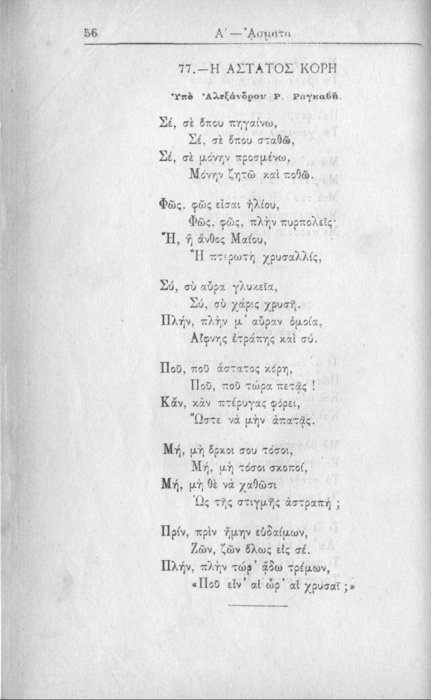 56
Α' — Ἄσματα
77.—Η ΑΣΤΑΤΟΣ ΚΟΡΗ
Ὑπὸ Ἀλεξάνδρου Ρ. Ραγκαβῆ.
Σέ, σὲ ὅπου πηγαίνω,
Σέ, σὲ ὅπου σταθῶ,
Σέ, σὲ μόνην προσμένω,
Μόνην ζητῶ καὶ ποθῶ.
Φῶς, φῶς εἶσαι ἡλίου,
Φῶς, φῶς, πλὴν πυρπολεῖς·
Ἤ, ἢ ἄνθος Μαΐου,
Ἢ πτερωτὴ χρυσαλλίς,
Σύ, σὺ αὔρα γλυκεῖα,
Σύ, σὺ χάρις χρυσῆ.
Πλήν, πλὴν μ' αὔραν ὁμοία,
Αἴφνης ἐτράπης καὶ σύ.
Ποῦ, ποῦ ἄστατος κόρη,
Ποῦ, ποῦ τώρα πετᾷς !
Κἄν, κἂν πτέρυγας φόρει,
Ὥστε νὰ μὴν ἀπατᾷς.
Μή, μὴ ὅρκοι σου τόσοι,
Μή, μὴ τόσοι σκοποί,
Μή, μὴ θὲ νὰ χαθῶσι
Ὡς τῆς στιγμῆς ἀστραπή ;
Πρίν, πρὶν ἤμην εὐδαίμων,
Ζῶν, ζῶν ὅλως εἰς σέ.
Πλήν, πλὴν τώρ' ᾄδω τρέμων,
«Ποῦ εἶν' αἱ ὧρ' αἱ χρυσαῖ ;»